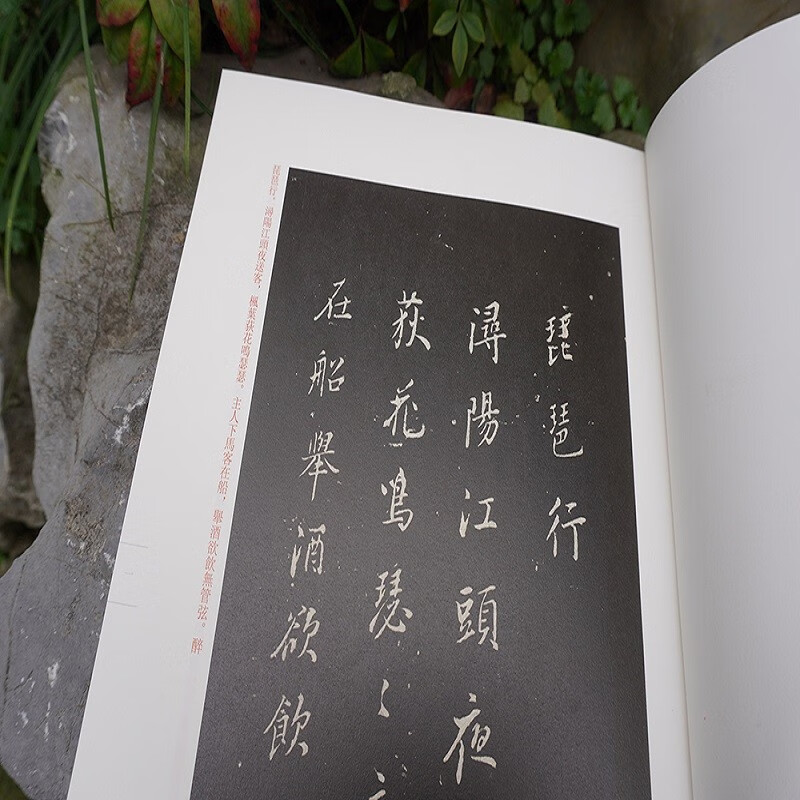 琵琶行
潯陽江頭夜
荻花鳴瑟〻
在船舉酒欲飲
琵琶行。潯陽江頭夜送客，楓葉荻花鳴瑟瑟。主人下馬客在船，舉酒欲飲無管弦。醉